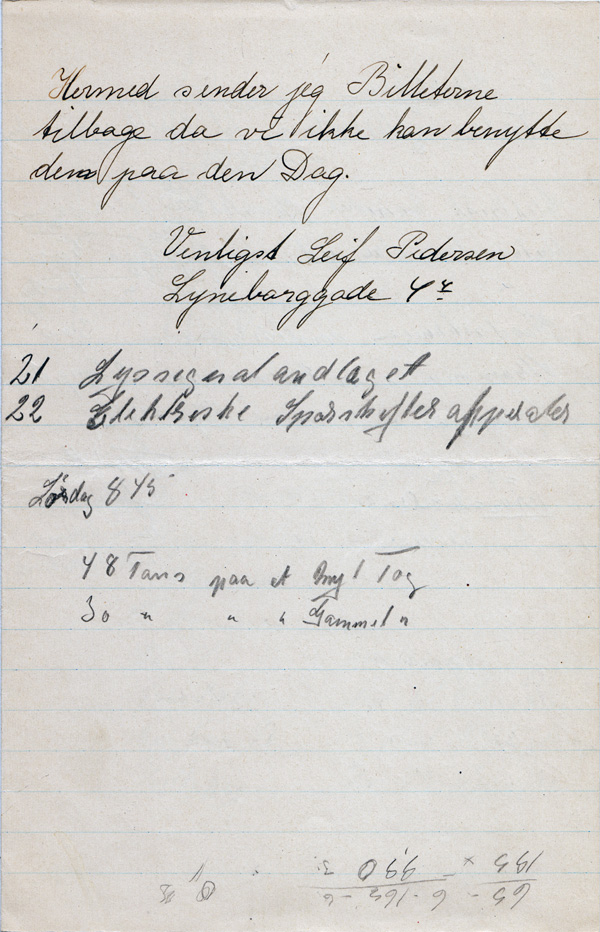 Hermed sender jeg Billeterne
tilbage da vi ikke kan benytte
dem paa den Dag.
Venligst Leif Pedersen
Lyneborggade 4
21 Lyssegnalandlaget
22 Elektriske Sporskifter apperater
Lørdag 845
48 Tons paa et nyt Tog
30 " " " Gammel "